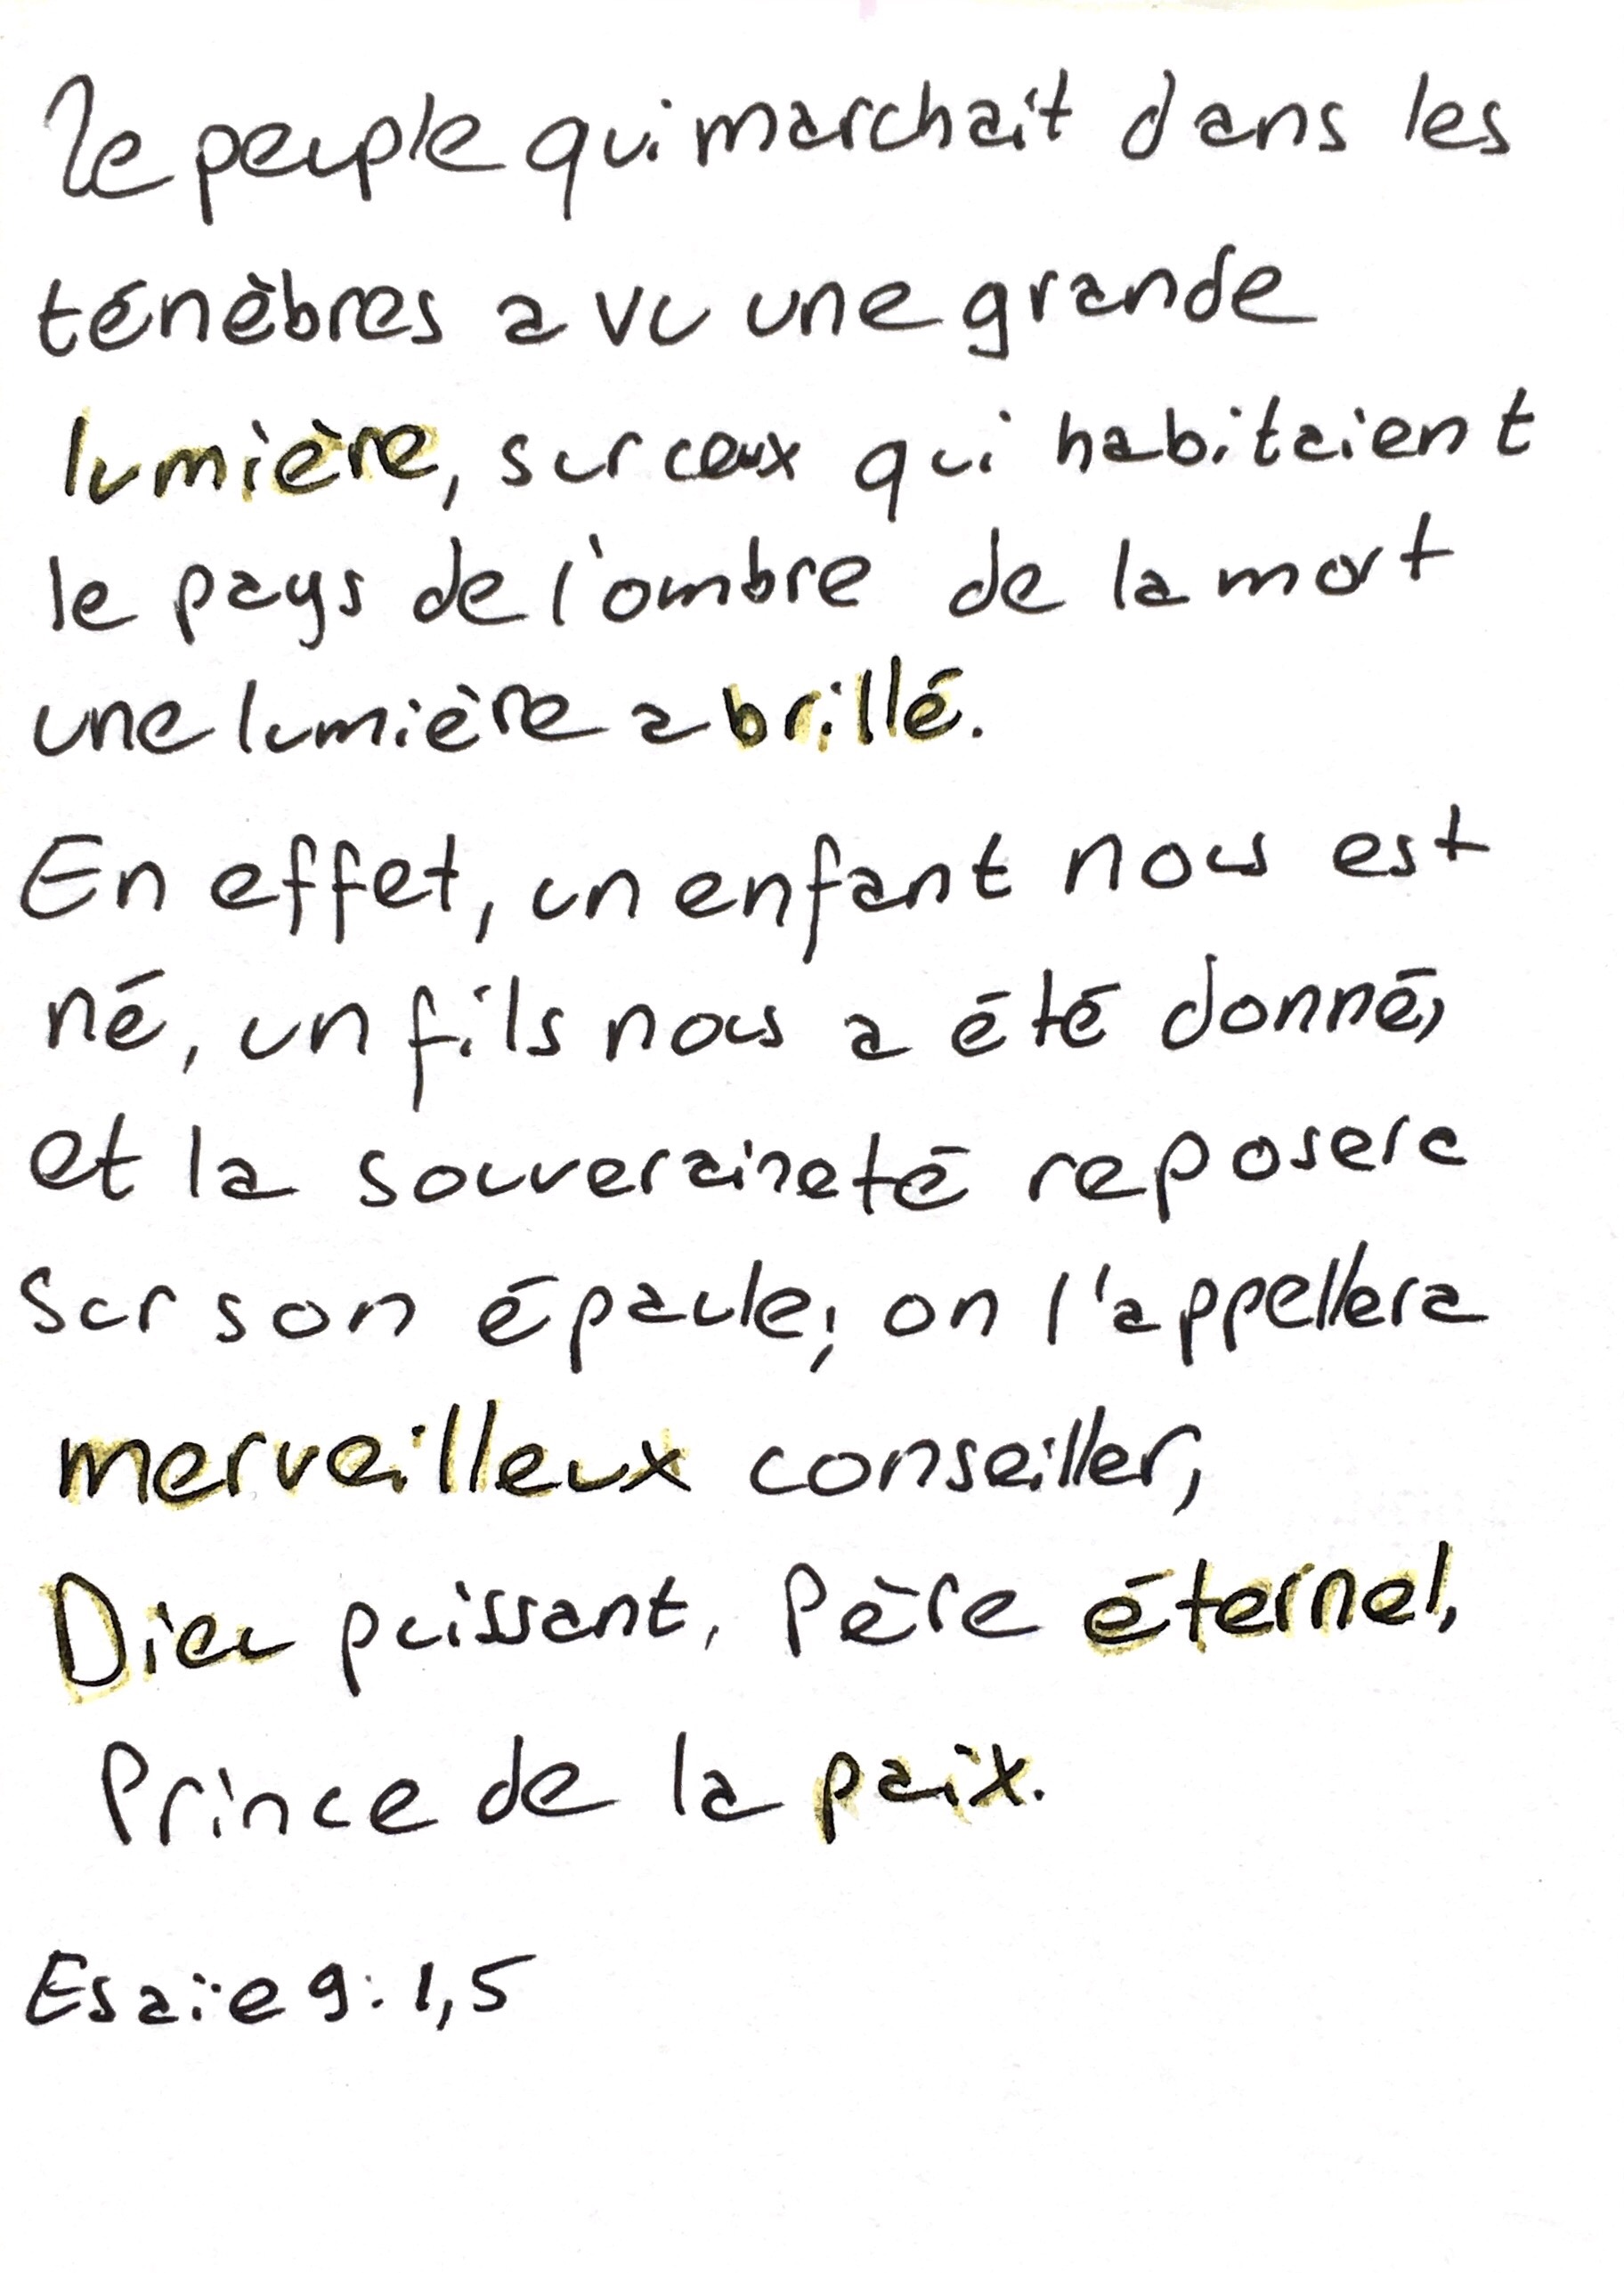 Le peuple qui marchait dans les
ténèbres a vu une grande
lumière, sur ceux qui habitaient
le pays de l'ombre de la mort
une lumière a brillé.
En effet, un enfant nous est
né, un fils nous a été donné,
et la souveraineté reposera
sur son épaule; on l'appellera
merveilleux conseiller,
Dieu puissant, Père éternel,
Prince de la paix.
Esaïe 9:1,5